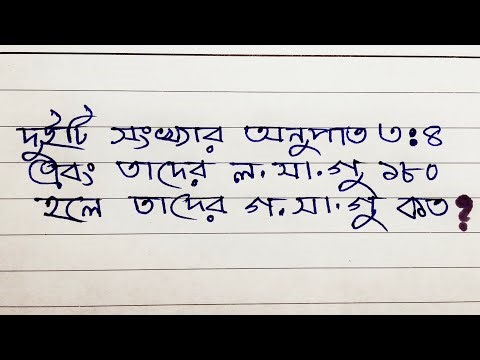 দুইটি সংখ্যার অনুপাত ৩:৪
এবং তাদের ল.সা.গু ১৮০
হলে তাদের গ.সা.গু কত?